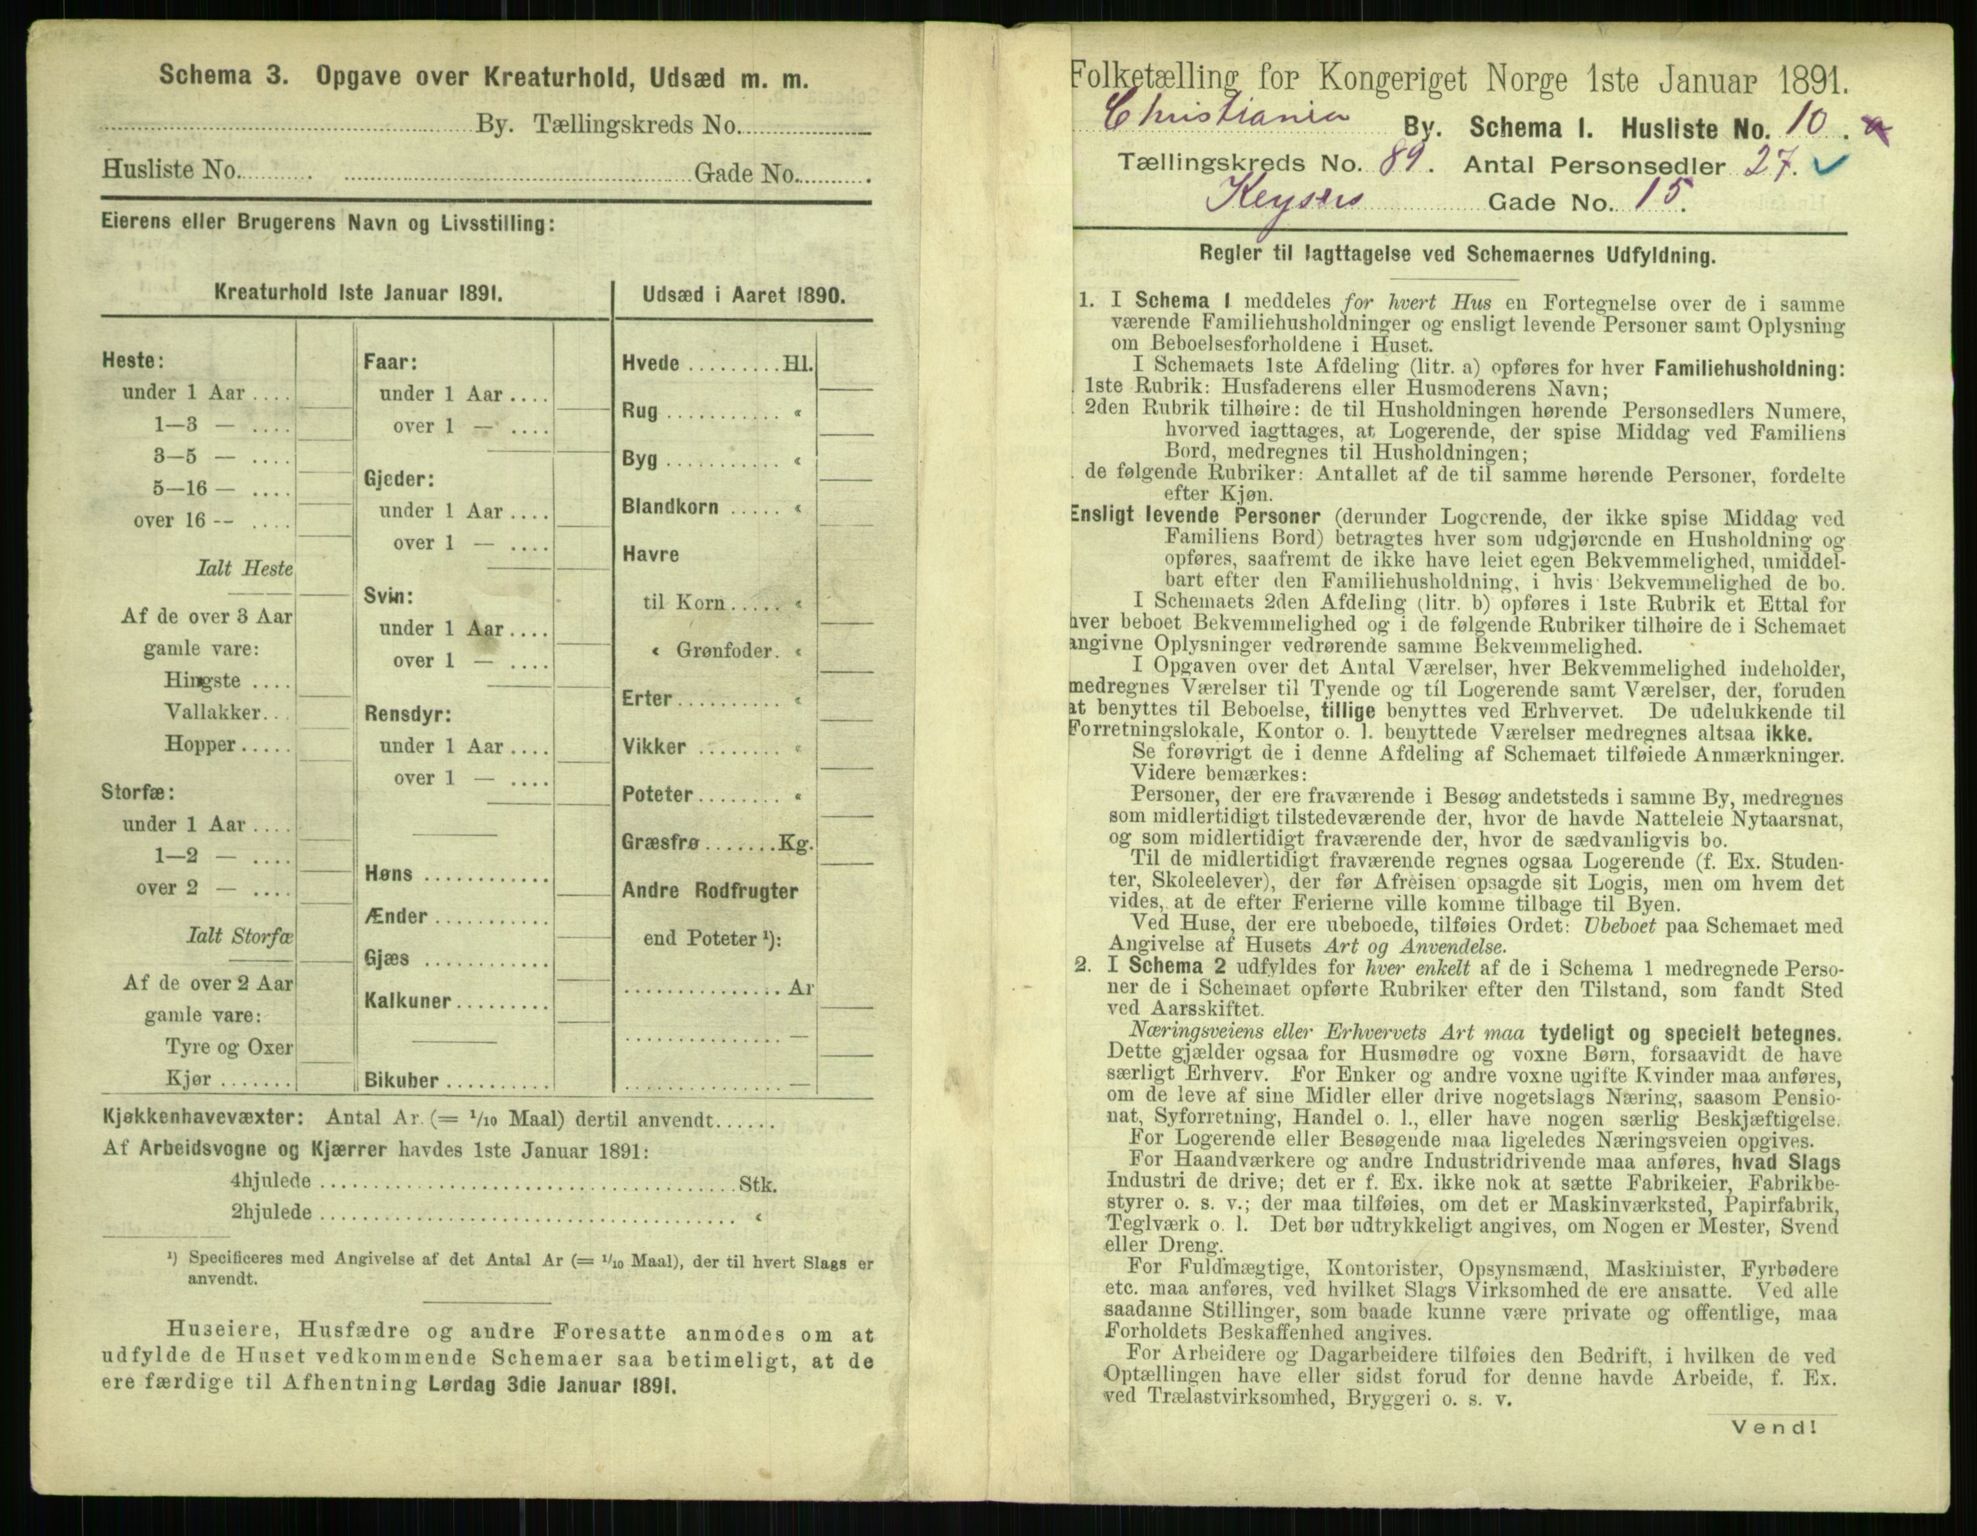 Schema 3. Opgave over Kreaturhold, Udsæd m. m.
By. Tællingskreds No.
Husliste No. Gade No.
Eierens eller Brugerens Navn og Livsstilling:
Kreaturhold 1ste Januar 1891.
Heste:
under 1 Aar
1—3 —
3—5 —
5—16 —
over 16 --
Ialt Heste
Af de over 3 Aar
gamle vare:
Hingste
Vallakker
Hopper
Storfæ:
under 1 Aar
1—2 —
over 2 —
Ialt Storfæ
Af de over 2 Aar
gamle vare:
Tyre og Oxer
Kjør
Faar:
under 1 Aar
over 1 —
Gjeder:
under 1 Aar
over 1 —
Svin:
under 1 Aar
over 1 —
Rensdyr:
under 1 Aar
over 1 —
Høns
Ænder
Gjæs
Kalkuner
Bikuber
Udsæd i Aaret 1890.
Hvede Hl.
Rug «
Byg «
Blandkorn «
Havre
til Korn «
« Grønfoder. «
Erter «
Vikker «
Poteter «
Græsfrø Kg.
Andre Rodfrugter
end Poteter ¹):
Ar
—
—
Kjøkkenhavevæxter: Antal Ar (= 1/10 Maal) dertil anvendt
Af Arbeidsvogne og Kjærrer havdes 1ste Januar 1891:
4hjulede Stk.
2hjulede «
¹) Specificeres med Angivelse af det Antal Ar (= 1/10 Maal), der til hvert Slags er
anvendt.
Huseiere, Husfædre og andre Foresatte anmodes om at
udfylde de Huset vedkommende Schemaer saa betimeligt, at de
ere færdige til Afhentning Lørdag 3die Januar 1891.
Folketælling for Kongeriget Norge 1ste Januar 1891.
Christiania By. Schema 1. Husliste No. 10. a
Tællingskreds No. 89. Antal Personsedler 27. ✓
Keysers Gade No. 15.
Regler til Iagttagelse ved Schemaernes Udfyldning.
1. I Schema 1 meddeles for hvert Hus en Fortegnelse over de i samme
værende Familiehusholdninger og ensligt levende Personer samt Oplysning
om Beboelsesforholdene i Huset.
I Schemaets 1ste Afdeling (litr. a) opføres for hver Familiehusholdning:
1ste Rubrik: Husfaderens eller Husmoderens Navn;
2den Rubrik tilhøire: de til Husholdningen hørende Personsedlers Numere,
hvorved iagttages, at Logerende, der spise Middag ved Familiens
Bord, medregnes til Husholdningen;
de følgende Rubriker: Antallet af de til samme hørende Personer, fordelte
efter Kjøn.
Ensligt levende Personer (derunder Logerende, der ikke spise Middag ved
Familiens Bord) betragtes hver som udgjørende en Husholdning og
opføres, saafremt de ikke have leiet egen Bekvemmelighed, umiddel-
bart efter den Familiehusholdning, i hvis Bekvemmelighed de bo.
I Schemaets 2den Afdeling (litr. b) opføres i 1ste Rubrik et Ettal for
hver beboet Bekvemmelighed og i de følgende Rubriker tilhøire de i Schemaet
angivne Oplysninger vedrørende samme Bekvemmelighed.
I Opgaven over det Antal Værelser, hver Bekvemmelighed indeholder,
medregnes Værelser til Tyende og til Logerende samt Værelser, der, foruden
at benyttes til Beboelse, tillige benyttes ved Erhvervet. De udelukkende til
Forretningslokale, Kontor o. l. benyttede Værelser medregnes altsaa ikke.
Se forøvrigt de i denne Afdeling af Schemaet tilføiede Anmærkninger.
Videre bemærkes:
Personer, der ere fraværende i Besøg andetsteds i samme By, medregnes
som midlertidigt tilstedeværende der, hvor de havde Natteleie Nytaarsnat,
og som midlertidigt fraværende der, hvor de sædvanligvis bo.
Til de midlertidigt fraværende regnes ogsaa Logerende (f. Ex. Studen-
ter, Skoleelever), der før Afreisen opsagde sit Logis, men om hvem det
vides, at de efter Ferierne ville komme tilbage til Byen.
Ved Huse, der ere ubeboede, tilføies Ordet: Ubeboet paa Schemaet med
Angivelse af Husets Art og Anvendelse.
2. I Schema 2 udfyldes for hver enkelt af de i Schema 1 medregnede Perso-
ner de i Schemaet opførte Rubriker efter den Tilstand, som fandt Sted
ved Aarsskiftet.
Næringsveiens eller Erhvervets Art maa tydeligt og specielt betegnes.
Dette gjælder ogsaa for Husmødre og voxne Børn, forsaavidt de have
særligt Erhverv. For Enker og andre voxne ugifte Kvinder maa anføres,
om de leve af sine Midler eller drive nogetslags Næring, saasom Pensio-
nat, Syforretning, Handel o. l., eller have nogen særlig Beskjæftigelse.
For Logerende eller Besøgende maa ligeledes Næringsveien opgives.
For Haandværkere og andre Industridrivende maa anføres, hvad Slags
Industri de drive; det er f. Ex. ikke nok at sætte Fabrikeier, Fabrikbe-
styrer o. s. v.; der maa tilføies, om det er Maskinværksted, Papirfabrik,
Teglværk o. l. Det bør udtrykkeligt angives, om Nogen er Mester, Svend
eller Dreng.
For Fuldmægtige, Kontorister, Opsynsmænd, Maskinister, Fyrbødere
etc. maa anføres, ved hvilket Slags Virksomhed de ere ansatte. Ved alle
saadanne Stillinger, som baade kunne være private og offentlige, maa
Forholdets Beskaffenhed angives.
For Arbeidere og Dagarbeidere tilføies den Bedrift, i hvilken de ved
Optællingen have eller sidst forud for denne havde Arbeide, f. Ex.
ved Trælastvirksomhed, Bryggeri o. s. v.
Vend!